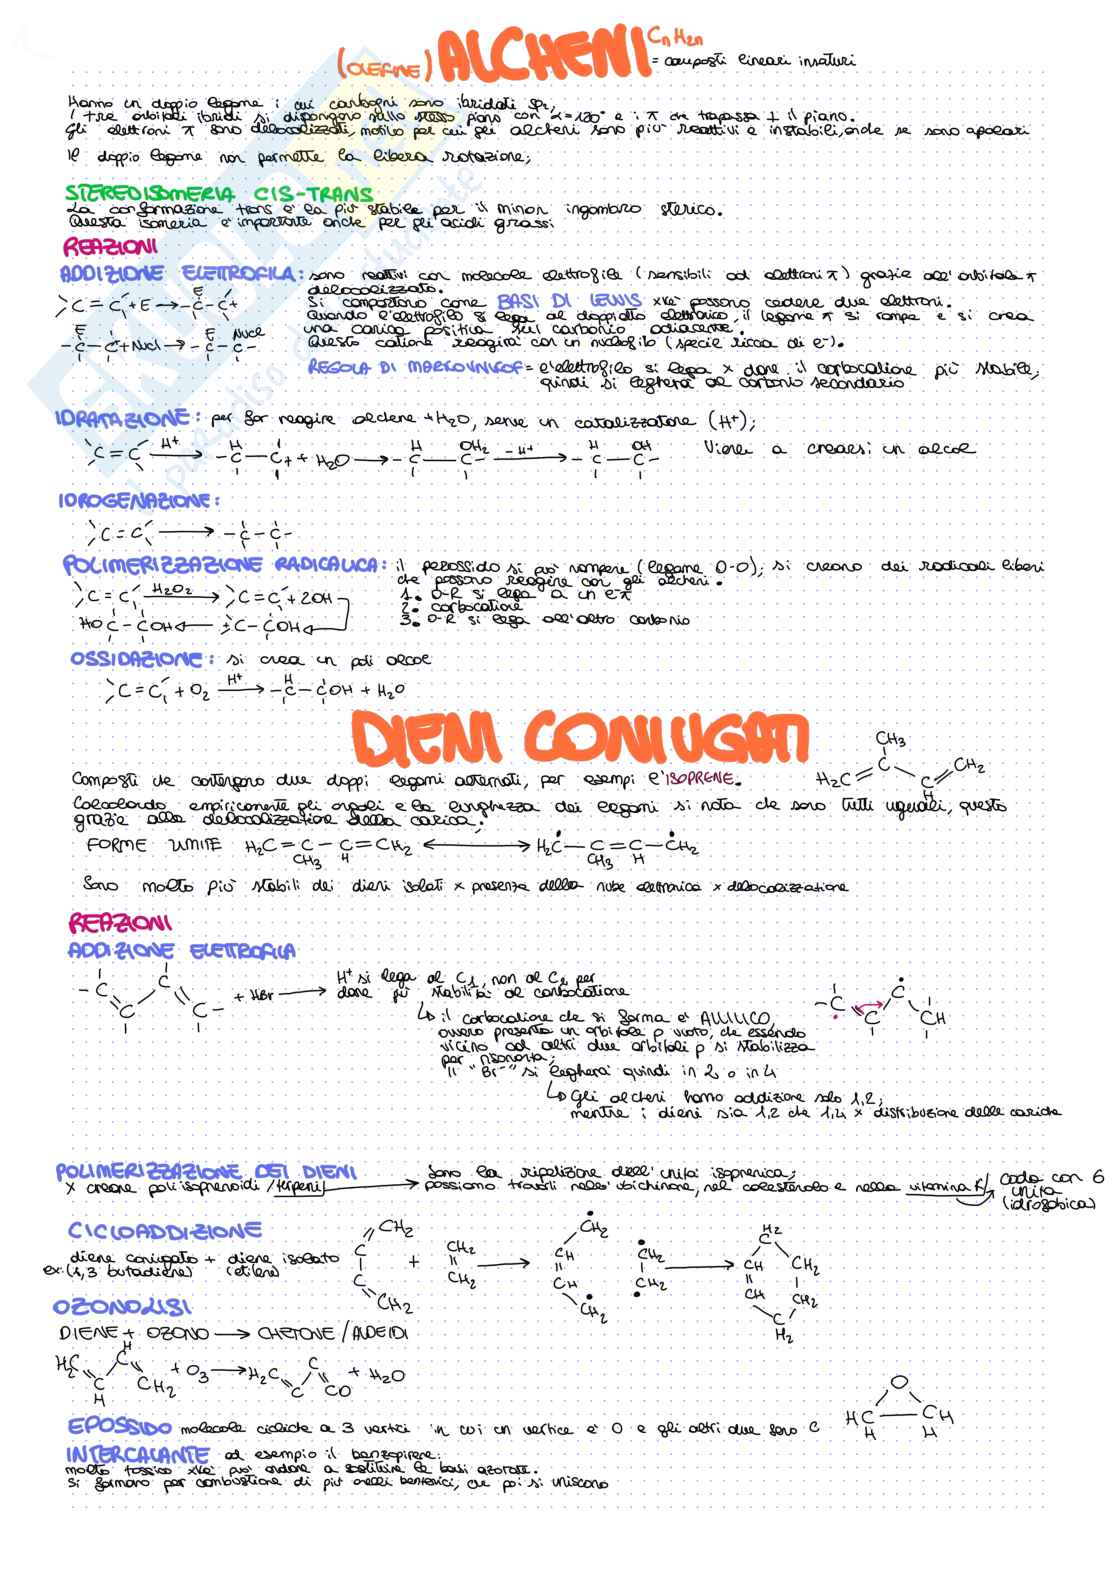 (OLEFINE) ALCHENI CnH2n = composti lineari insaturi
Hanno un doppio legame i cui carbogni sono ibridati sp2,
I tre orbitali ibridi si dispongono sullo stesso piano con α=120° e i π che trapassa ⊥ il piano.
Gli elettroni π sono delocalizzati, motivo per cui gli alcheni sono più reattivi e instabili, anche se sono apolari
Il doppio legame non permette la libera rotazione;
STEREOISOMERIA CIS-TRANS
La conformazione trans è la più stabile per il minor ingombro sterico.
Questa isomeria è importante anche per gli acidi grassi
REAZIONI
ADDIZIONE ELETTROFILA: sono reattivi con molecole elettrofile (sensibili ad elettroni π) grazie all'orbitale π
delocalizzato.
Si comportano come BASI DI LEWIS xkè possono cedere due elettroni.
Quando l'elettrofilo si lega al doppietto elettronico, il legame π si rompe e si crea
una carica positiva sul carbonio adiacente.
Questo catione reagirà con un nucleofilo (specie ricca di e-).
C=C + E → -C-C+
-C-C+ + Nucl → -C-C-
E Nucl
REGOLA DI MARCOVNIKOF = l'elettrofilo si lega x dare il carbocatione più stabile,
quindi si legherà al carbonio secondario
IDRATAZIONE: per far reagire alchene + H2O, serve un catalizzatore (H+);
C=C H+ → -C-C+ + H2O → -C-C- -H+ → -C-C- Viene a crearsi un alcol
H H OH2 H OH
IDROGENAZIONE:
C=C → -C-C-
POLIMERIZZAZIONE RADICALICA: il perossido si può rompere (legame O-O); si creano dei radicali liberi
che possono reagire con gli alcheni.
1. O-R si lega a un e-π
2. carbocatione
3. O-R si lega all'altro carbonio
C=C H2O2 → C=C + 2OH
HOC-COH ← +C-COH
OSSIDAZIONE: si crea un poli alcol
C=C + O2 H+ → -C-COH + H2O
H
DIENI CONIUGATI
Composti che contengono due doppi legami alternati, per esempi l'ISOPRENE.
CH3
H2C C C H CH2
Calcolando empiricamente gli angoli e la lunghezza dei legami si nota che sono tutti uguali, questo
grazie alla delocalizzazione della carica;
FORME LIMITE H2C=C-C=CH2 ⟷ H2C-C=C-CH2
CH3 H CH3 H
Sono molto più stabili dei dieni isolati x presenza della nube elettronica x delocalizzazione
REAZIONI
ADDIZIONE ELETTROFILA
-C C C C- + HBr → H+ si lega al C1, non al C2 per
dare più stabilità al carbocatione
↳ il carbocatione che si forma è ALLILICO,
ovvero presenta un orbitale p vuoto, che essendo
vicino ad altri due orbitali p si stabilizza
per risonanza;
Il "Br-" si legherà quindi in 2 o in 4
↳ Gli alcheni hanno addizione solo 1,2,
mentre i dieni sia 1,2 che 1,4 x distribuzione delle cariche
-C C C CH
POLIMERIZZAZIONE DEI DIENI Sono la ripetizione dell'unità isoprenica;
x creare poli isoprenoidi / terpeni → possiamo trovarli nell'ubichinone, nel colesterolo e nella vitamina K → coda con 6
unità
(idrofobica)
CICLOADDIZIONE
diene coniugato + diene isolato
ex: (1,3 butadiene) (etilene)
CH2 C C CH2 + CH2 CH2 → CH2 CH CH CH2 CH2 CH2 → H2C CH CH CH2 CH2 C H2
OZONOLISI
DIENE + OZONO → CHETONE / ALDEIDI
H2C C H C H CH2 + O3 → H2C C C CO + H2O
EPOSSIDO molecole cicliche a 3 vertici in cui un vertice è O e gli altri due sono C
O
HC CH
H H
INTERCALANTE ad esempio il benzopirene:
molto tossico xkè può andare a sostituire le basi azotate.
Si formano per combustione di più anelli benzenici, che poi si uniscono